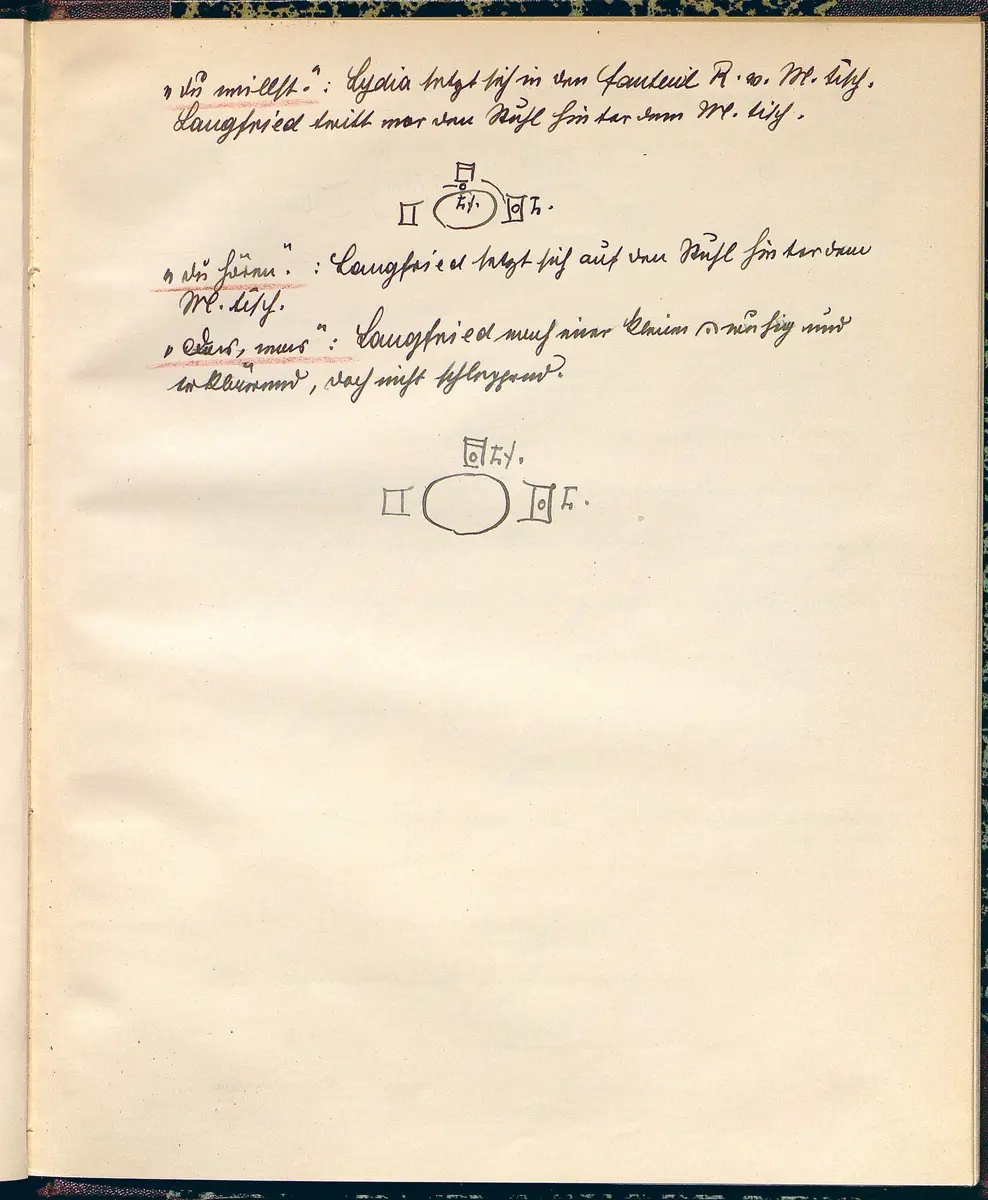 „du willst.": Lydia setzt sich in den Fauteuil R. v. M. tisch.
Langfried tritt vor den Stuhl hinter dem M. tisch.
Ly.
L.
„du hören.": Langfried setzt sich auf den Stuhl hinter dem
M. tisch.
„Das, was": Langfried nach einer kleinen ruhig und
erklärend, doch nicht schleppend.
Ly.
L.